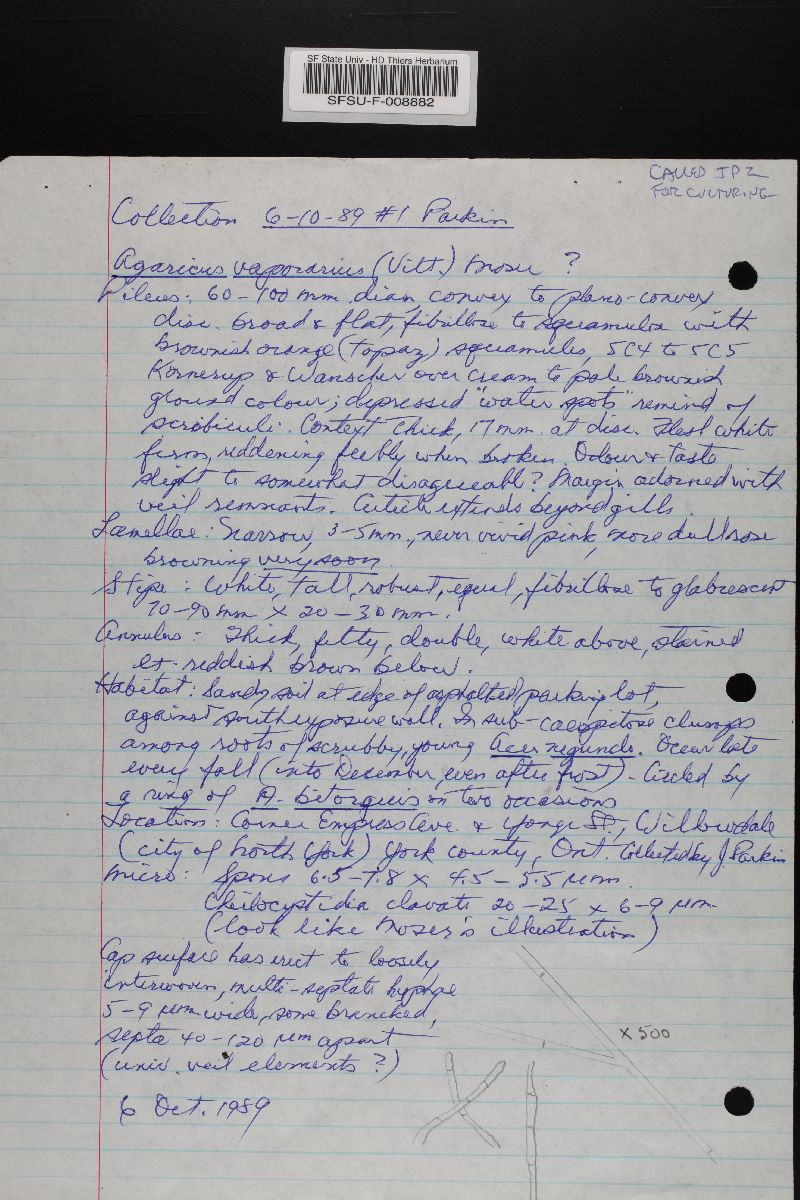 SF State Univ - HD Thiers Herbarium
SFSU-F-008882
CALLED JP2
FOR CULTURING
Collection 6-10-89 #1 Parkin
Agaricus vaporarius (Vitt.) Moser ?
Pileus: 60-100 mm diam convex to plano-convex
disc broad & flat, fibrillose to squamulose with
brownish orange (topaz) squamules, 5C4 to 5C5
Kornerup & Wanscher over cream to pale brownish
ground colour; depressed "water spots" remind of
scrobiculi. Context thick, 17 mm at disc. Flesh white
firm, reddening feebly when broken. Odour & taste
slight to somewhat disagreeable? Margin adorned with
veil remnants. Cuticle extends beyond gills.
Lamellae: Narrow, 3-5mm, never vivid pink, more dull rose
browning very soon.
Stipe: White, tall, robust, equal, fibrillose to glabrescent
70-90 mm x 20-30 mm.
Annulus: Thick, felty, double, white above, stained
lt. reddish brown below.
Habitat: Sandy soil at edge of asphalted parking lot,
against south exposure wall. In sub-caespitose clumps
among roots of scrubby, young Acer negundo. Occur late
every fall (into December, even after frost). Circled by
a ring of A. bitorquis on two occasions
Location: Corner Empress Ave. & Yonge St., Willowdale
(city of North York) York county, Ont. Collected by J Parkin
Micro: Spores 6.5-7.8 x 4.5-5.5 µm.
Cheilocystidia clavate 20-25 x 6-9 µm
(look like Moser's illustration)
Cap surface has erect to loosely
interwoven, multi-septate hyphae
5-9 µm wide, some branched,
septa 40-120 µm apart
(univ. veil elements ?)
x 500
6 Oct. 1989